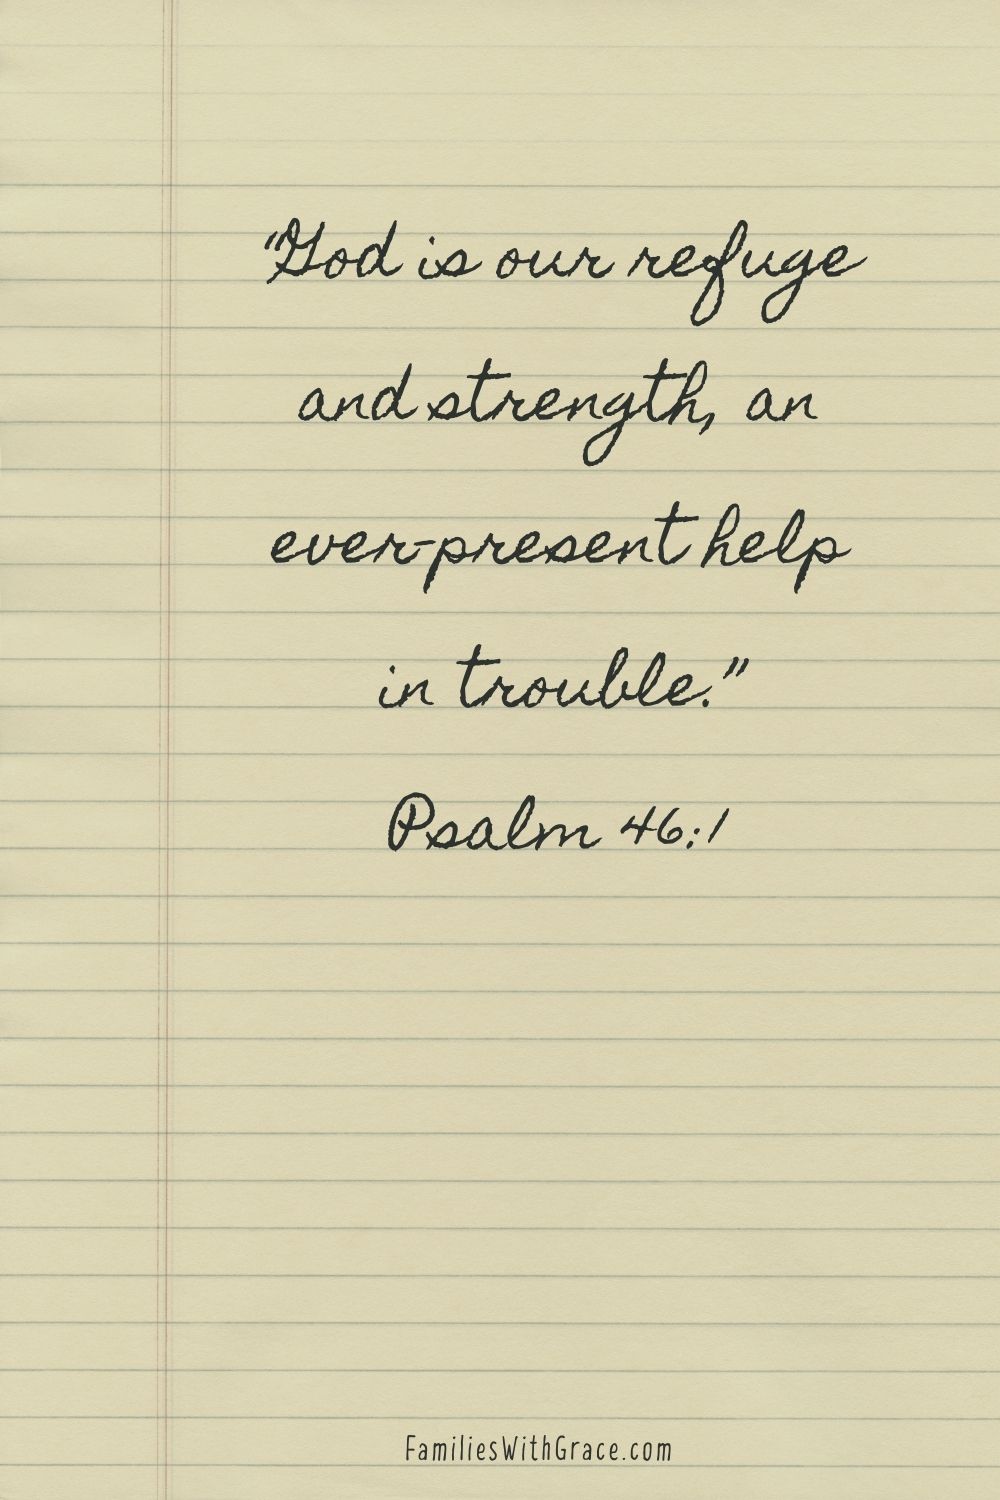 "God is our refuge
and strength, an
ever-present help
in trouble."
Psalm 46:1
FamiliesWithGrace.com